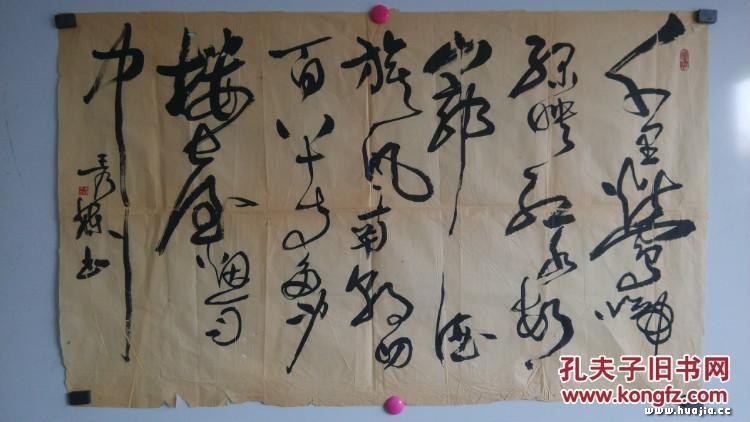 千里鶯啼
綠映紅水村
山郭酒
旗風南朝四
百八十寺多少
樓臺烟雨
中
书
孔夫子旧书网
www.kongfz.com
www.huajia.cc